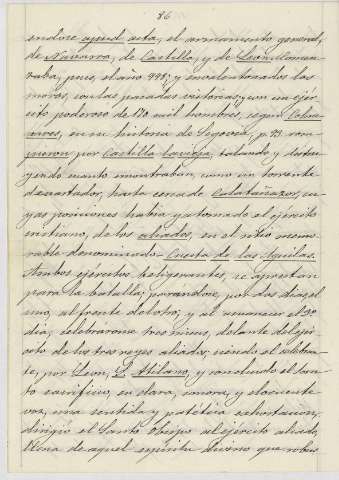 86
endose apud acta, el armamento general,
de Navarra, de Castilla, y de León. Comen-
zaba, pues, el año 998; y envalentonados los
moros, con las pasadas victorias, y con un ejér-
cito poderoso de 170 mil hombres, según Colme-
nares, en su historia de Segovia, p. 93 rom-
pieron por Castilla la vieja, talando y destru-
yendo cuanto encontraban, como un torrente
devastador, hasta cerca de Calatañazor, cu-
yas posiciones había ya tomado el ejército
cristiano, de los aliados, en el sitio memo-
rable denominado Cuesta de las Aguilas.
Ambos ejercitos beligerantes, se aprestan
para la batalla; parándose, por dos dias, el
uno, al frente del otro; y al amanecer el 3º
dia, celebraronse tres misas, delante del ejér-
cito de los tres reyes aliados; siendo el celebran-
te, por León, D. Atilano, y concluido el San-
to sacrificio, en clara, sonora, y elocuente
voz, una sentida y patética exhortacion,
dirigió el Santo Obispo al ejército aliado,
llena de aquel espíritu divino que robus